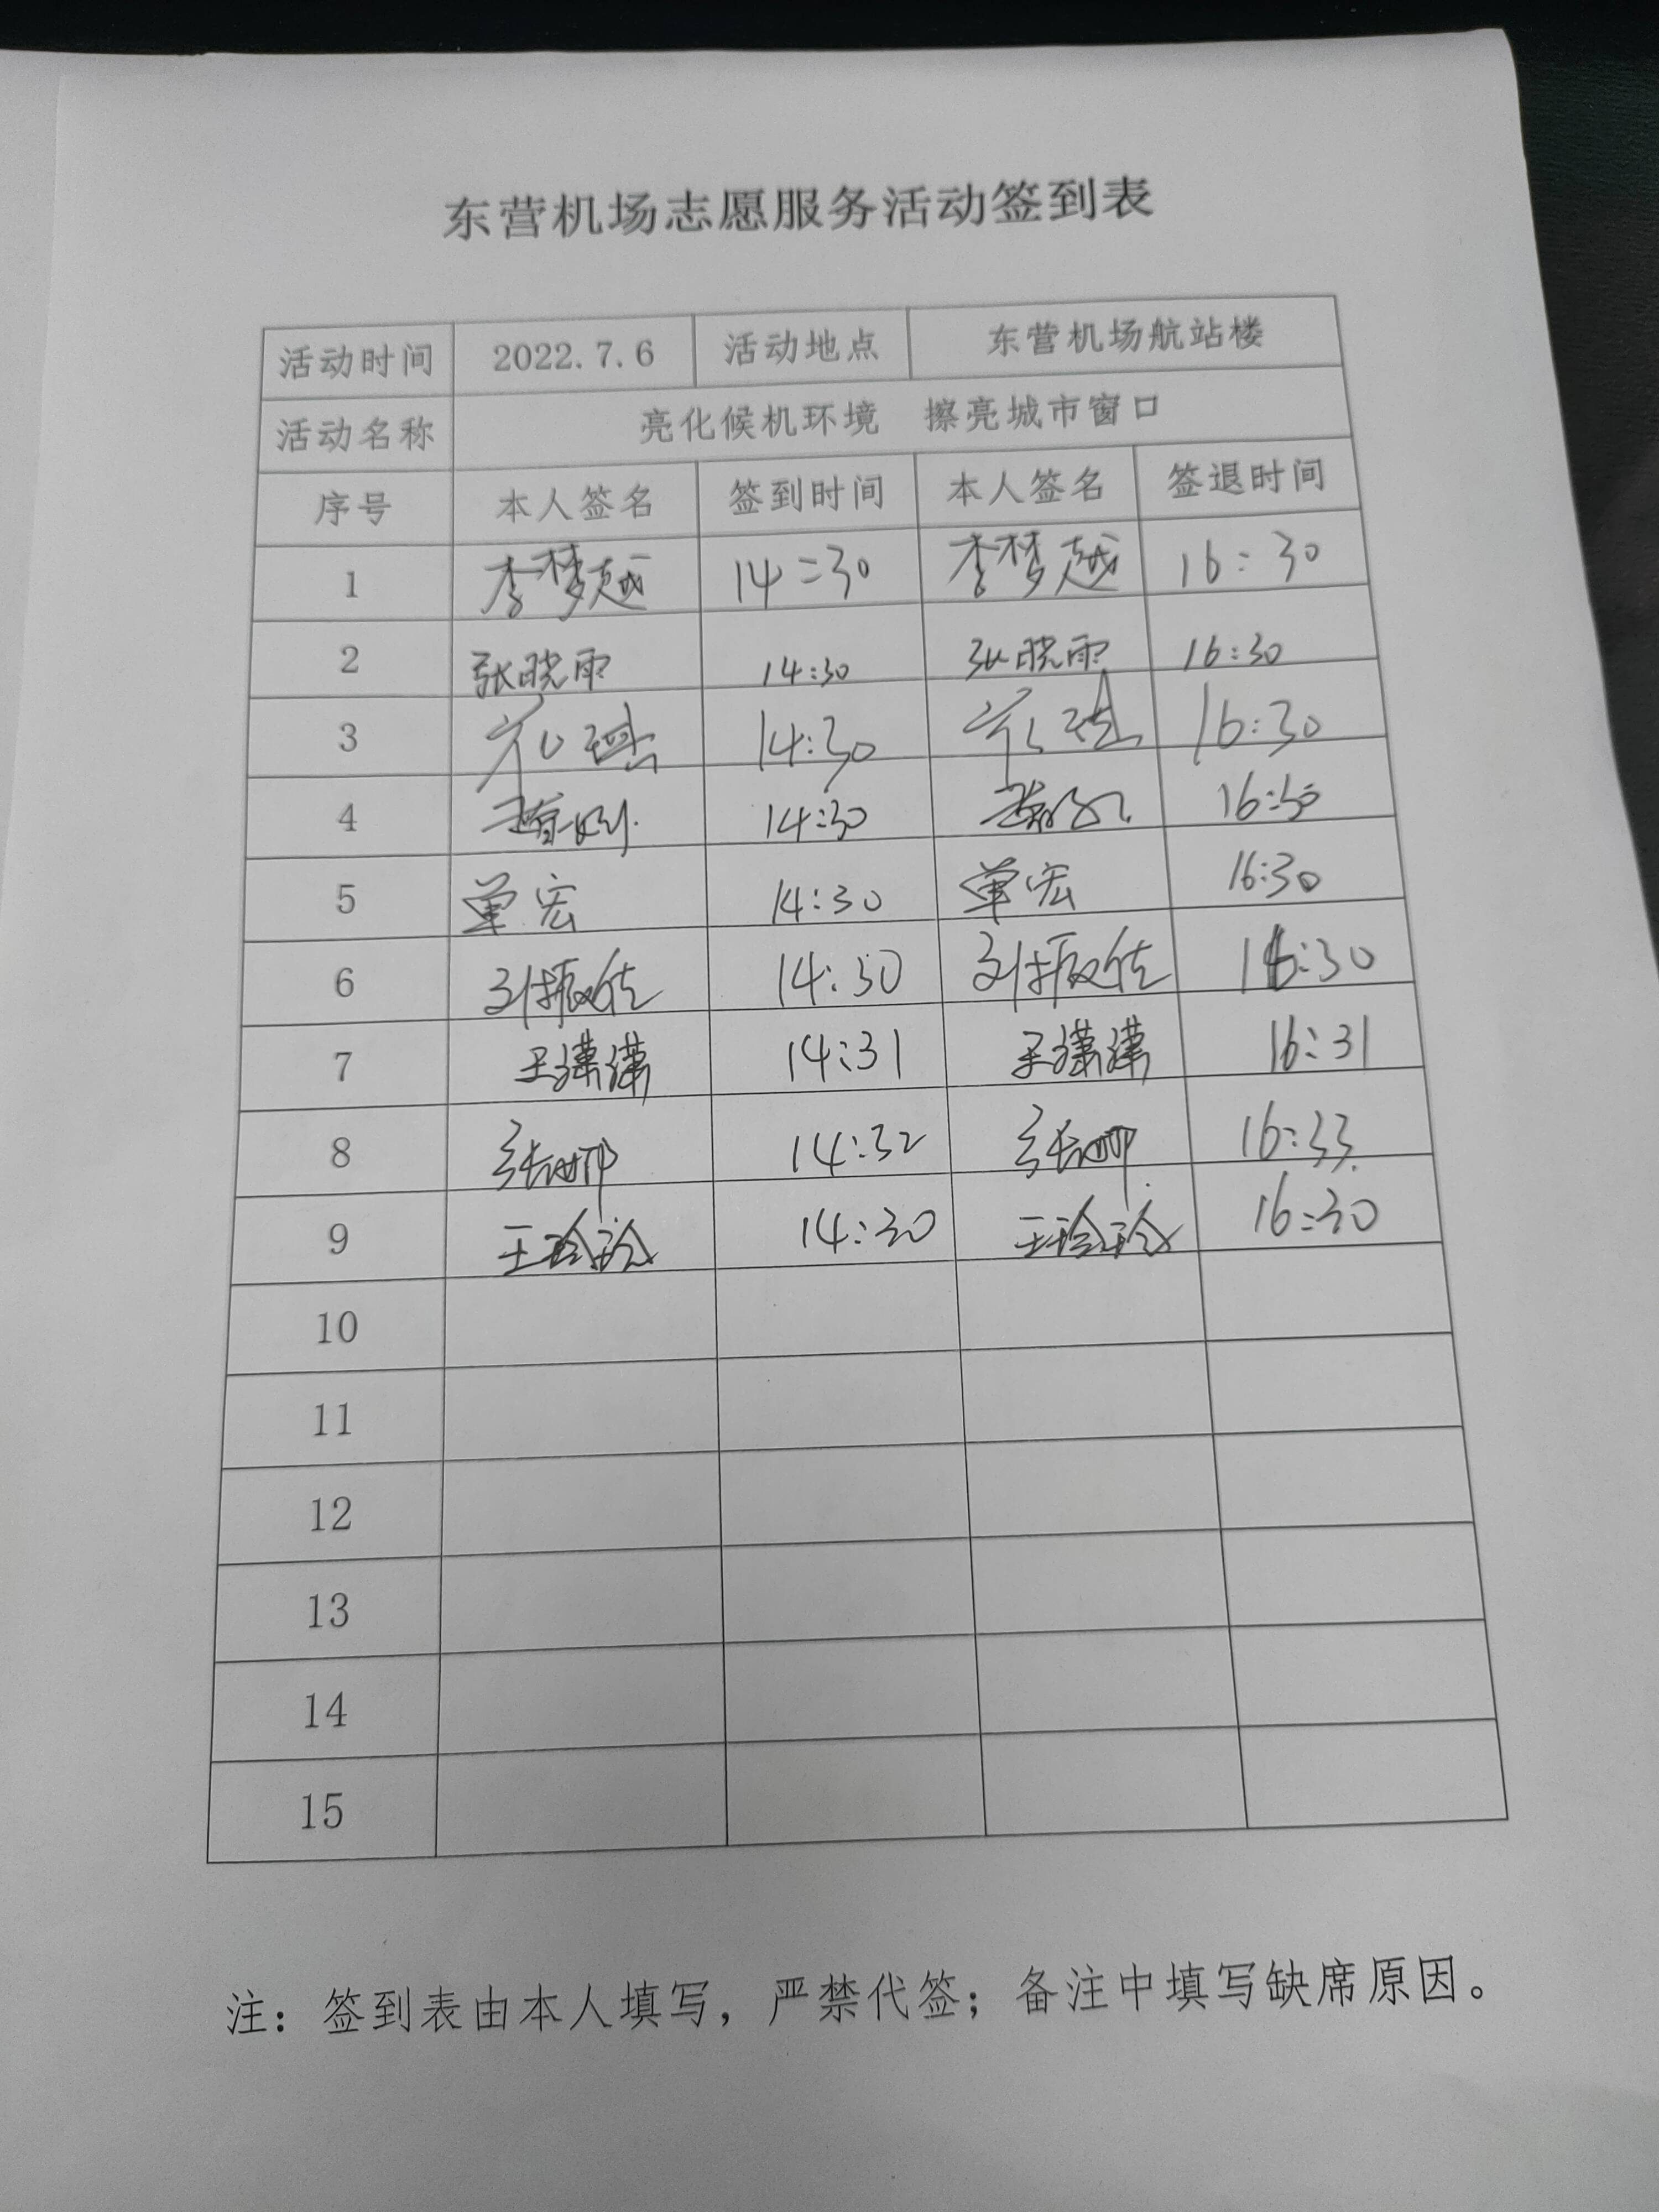 东营机场志愿服务活动签到表
活动时间 2022.7.6 活动地点 东营机场航站楼
活动名称 亮化候机环境 擦亮城市窗口
序号 本人签名 签到时间 本人签名 签退时间
1 李梦越 14:30 李梦越 16:30
2 张晓雨 14:30 张晓雨 16:30
3 14:30 16:30
4 14:30 16:30
5 单宏 14:30 单宏 16:30
6 刘振佳 14:30 刘振佳 16:30
7 王潇潇 14:31 王潇潇 16:31
8 张娜 14:32 张娜 16:33
9 王玲玲 14:30 王玲玲 16:30
10
11
12
13
14
15
注：签到表由本人填写，严禁代签；备注中填写缺席原因。